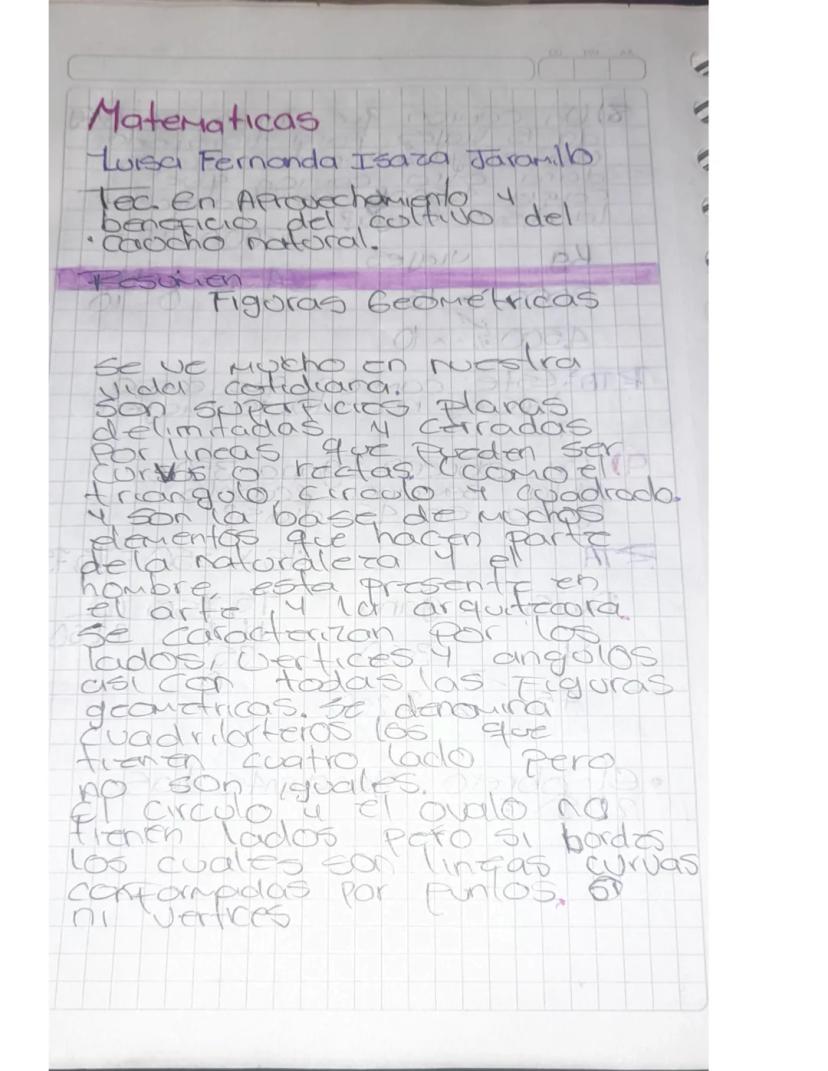 Matematicas
Luisa Fernanda Isaza Jaramillo
Tec. en Aprovechamiento y
beneficio del coltivo del
caocho natoral.
Resumen
Figoras Geométricas
se ve mucho en nuestra
vida cotidiana.
son superficies planas
delimitadas y cerradas
por lineas que pueden ser
curvas o rectas, como el
triangulo, circulo y cuadrado.
y son la base de muchos
elementos que hacen parte
dela naturaleza y el
hombre, esta presente en
el arte, y la arquitecora.
se caracterizan por los
lados, vertices y angolos
asi con todas las Figuras
geometricas. se denomina
cuadrilarteros los que
tienen cuatro lado pero
no son iguales.
El circulo y el ovalo no
tienen lados pero si bordes
los cuales son lineas curvas
conformadas por puntos.
ni vertices